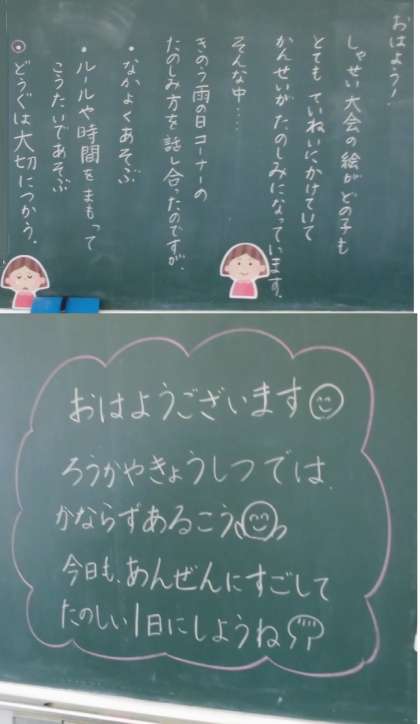 おはよう!
しゃせい大会の絵がどの子も
とてもていねいにかけていて
かんせいがたのしみになっています。
そんな中…
きのう雨の日コーナーの
たのしみ方を話し合ったのですが、
・なかよくあそぶ
・ルールや時間をまもって
こうたいであそぶ
・どうぐは大切につかう。
おはようございます
ろうかやきょうしつでは、
かならずあるこう
今日も、あんぜんにすごして
たのしい1日にしようね